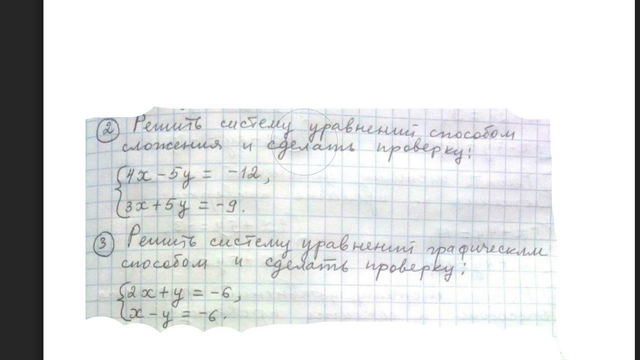 ② Решить систему уравнений способом
сложения и сделать проверку:
{4x - 5y = -12,
{3x + 5y = -9.
③ Решить систему уравнений графическим
способом и сделать проверку:
{2x + y = -6,
{x - y = -6.